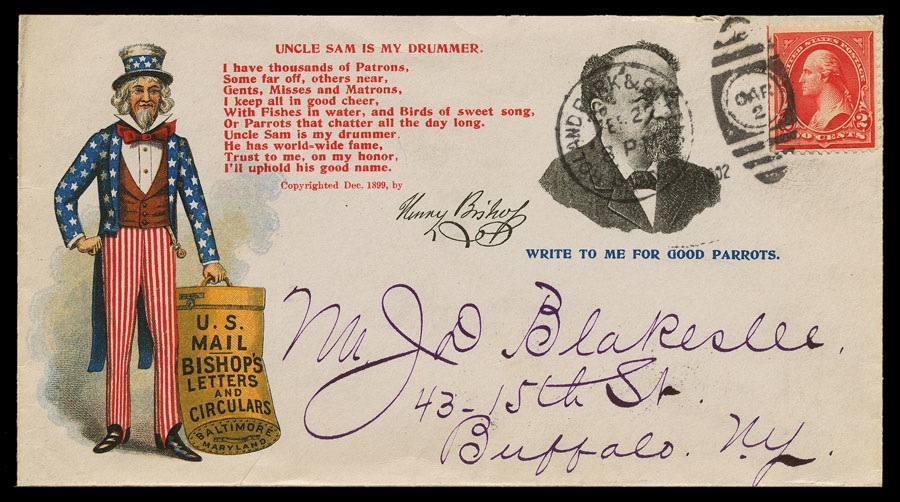 UNCLE SAM IS MY DRUMMER.
I have thousands of Patrons,
Some far off, others near,
Gents, Misses and Matrons,
I keep all in good cheer,
With Fishes in water, and Birds of sweet song,
Or Parrots that chatter all the day long.
Uncle Sam is my drummer.
He has world-wide fame,
Trust to me, on my honor,
I'll uphold his good name.
Copyrighted Dec. 1899, by
Henry Bishop
WRITE TO ME FOR GOOD PARROTS.
UNITED STATES POSTAGE
2 TWO CENTS 2
U.S.
MAIL
BISHOP'S
LETTERS
AND
CIRCULARS
BALTIMORE
MARYLAND
Mr J D Blakeslee.
43-15th St.
Buffalo. N.Y.